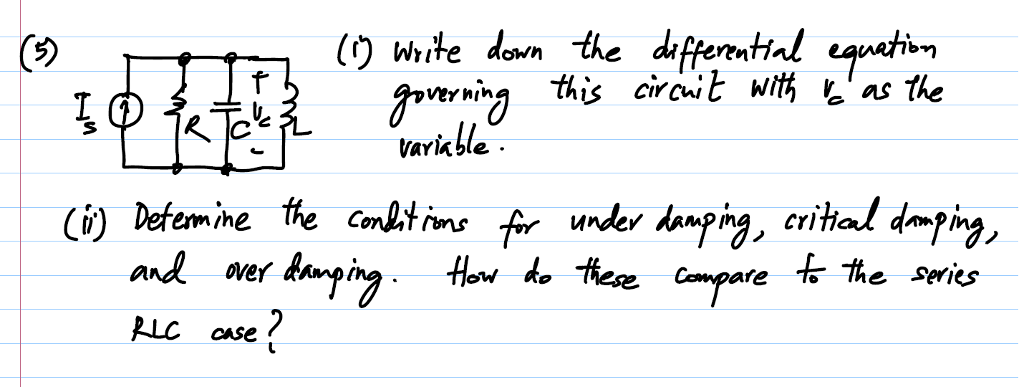 (5)
(i) Write down the differential equation
governing this circuit with Vc as the
variable.
Is R C + Vc - L
(ii) Determine the conditions for under damping, critical damping,
and over damping. How do these compare to the series
RLC case?